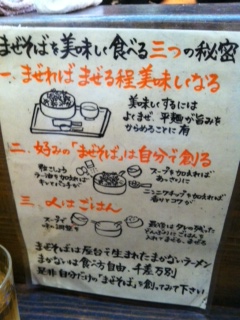 まぜそばを美味しく食べる三つの秘密
一、まぜればまぜる程美味しくなる
美味しくするには
よくまぜ、平麺が旨みを
からめることに有
二、好みの「まぜそば」は自分で創る
スープを加えれば
あっさりに
ニンニクチップを加えれば
三、〆はごはん
スープで
まぜそばは屋台で生まれたまかないラーメン
まかないは食べ方自由、千差万別
是非自分だけの「まぜそば」を創ってみて下さい